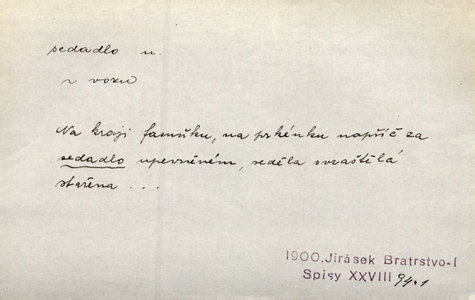 sedadlo n.
v vozu
Na kraji famfrku, na prkénku napříč za
sedadlo upevněném, seděla svraštělá
stařena ...
1900. Jirásek Bratrstvo-I
Spisy XXVIII 94.1